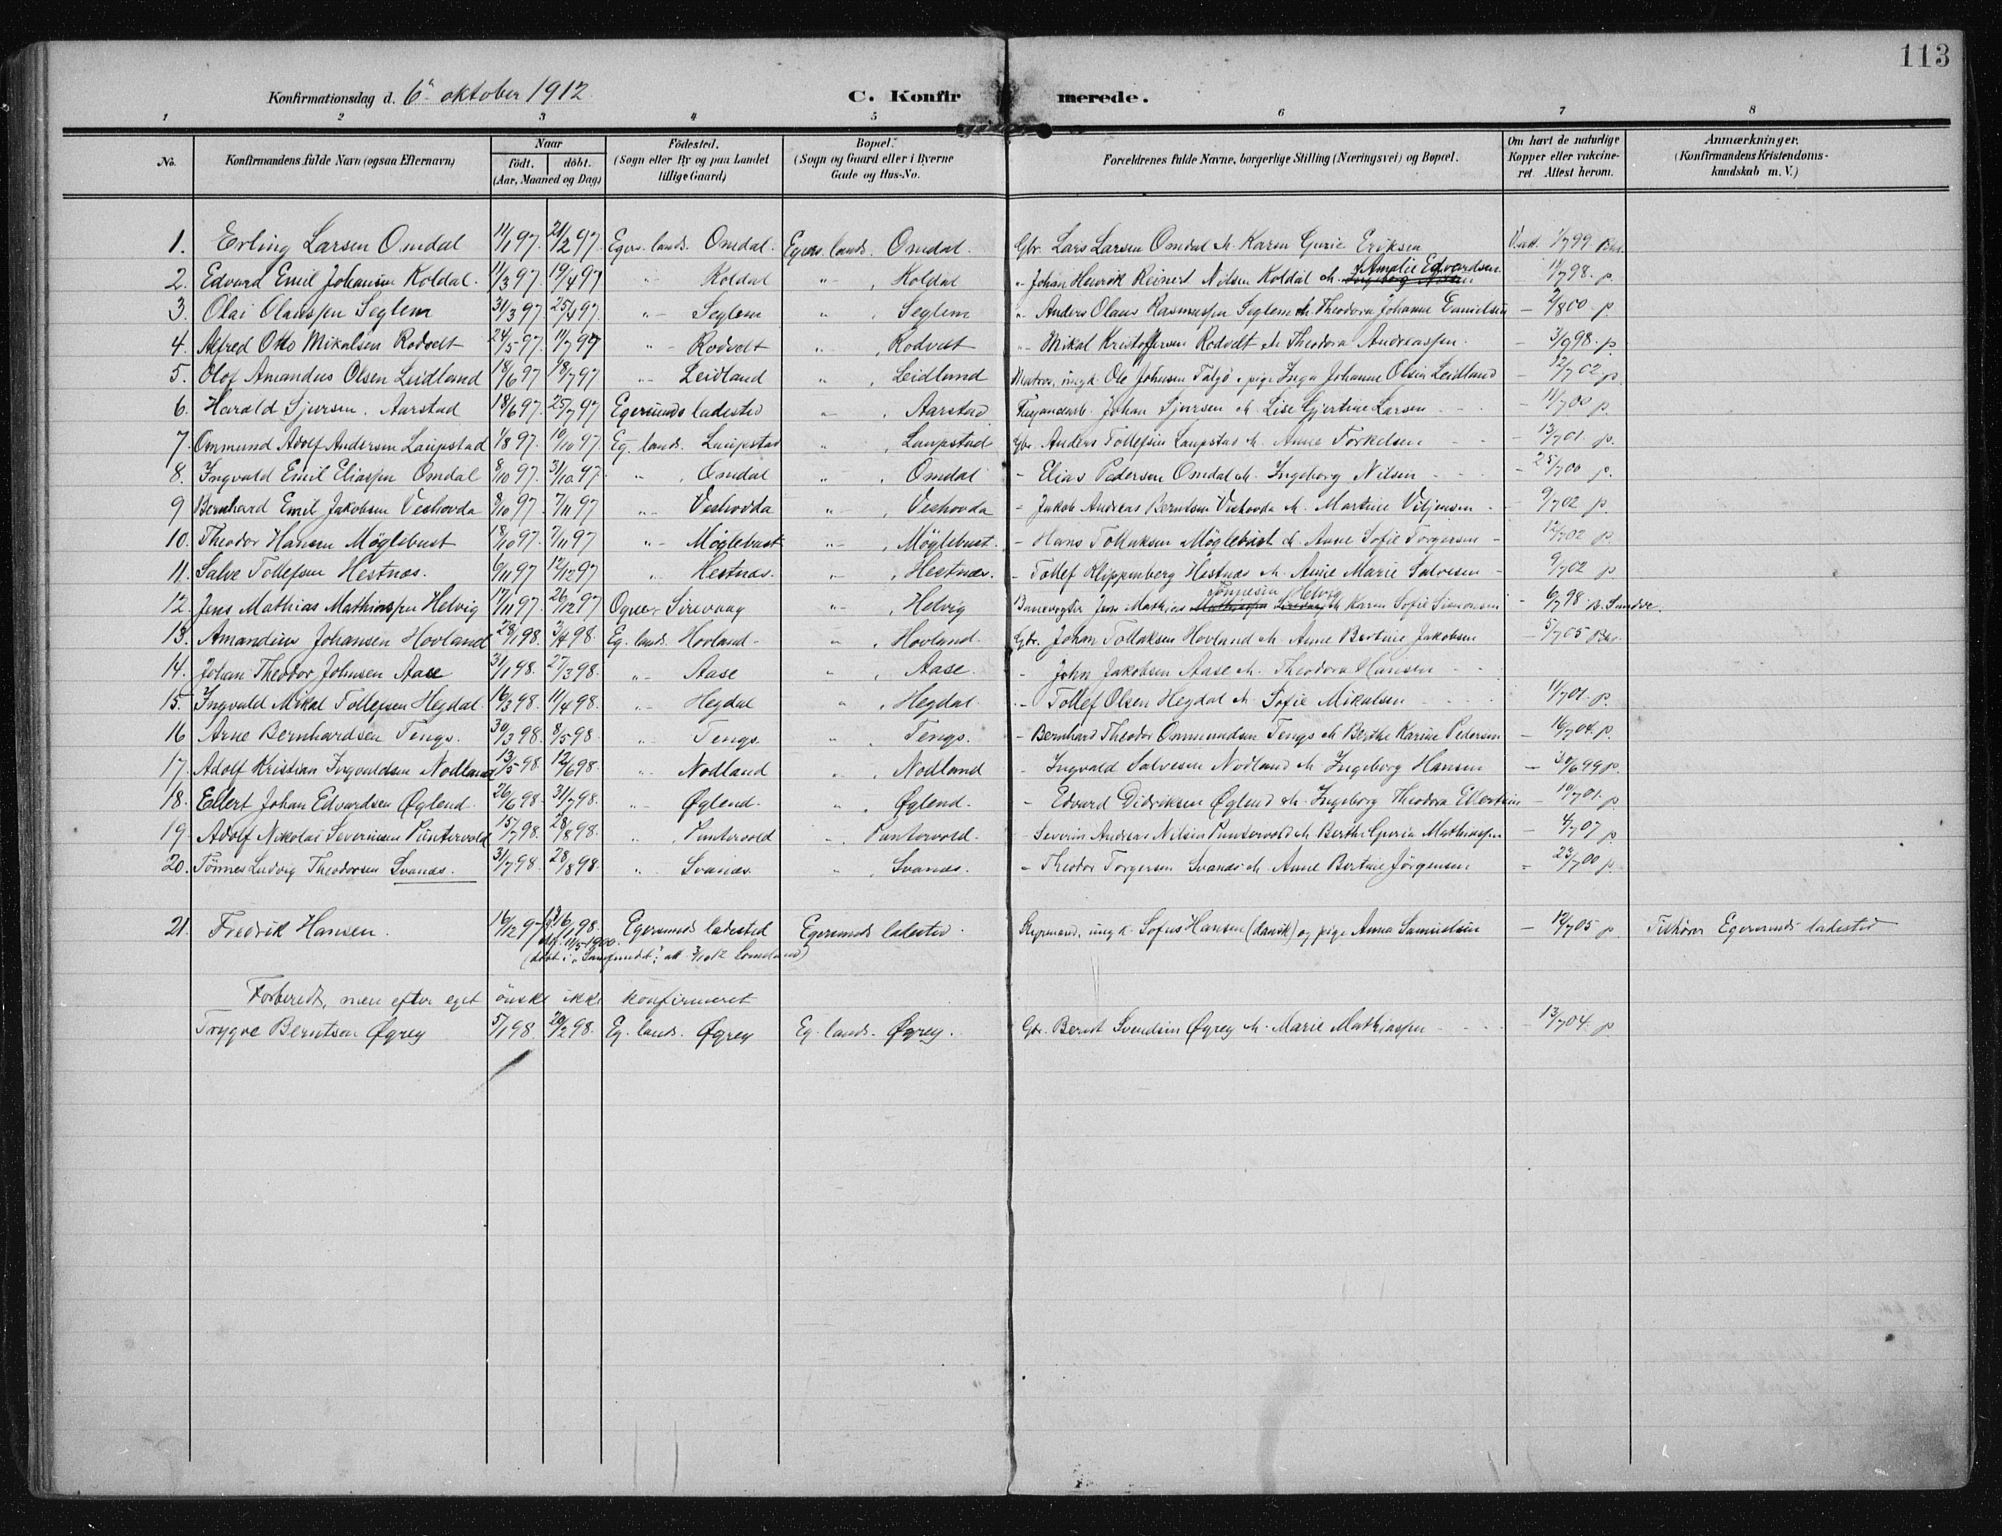 113
Konfirmationsdag d. 6. oktober 1912 C. Konfirmerede.
1 2 3 4 5 6 7 8
No. Konfirmandens fulde Navn (ogsaa Efternavn) Naar født. døbt. (Aar, Maaned og Dag) Fødested. (Sogn eller By og paa Landet tillige Gaard) Bopæl. (Sogn og Gaard eller i Byerne Gade og Hus-No. Forældrenes fulde Navne, borgerlige Stilling (Næringsvei) og Bopæl. Om havt de naturlige Kopper eller vakcineret. Attest herom. Anmærkninger. (Konfirmandens Kristendomskundskab m. V.)
1. Erling Larsen Omdal 11/1 97. 21/2 97. Egers. lands. Omdal. Egers. lands. Omdal. Gbr. Lars Larsen Omdal & Karen Gurie Eriksen Vacc. 1/7 99
2. Edvard Emil Johansen Koldal. 11/3 97. 19/4 97 " - Koldal " - , Koldal " Johan Henrik Reinert Nilsen Koldal & Amalie Edvardsen 11/7 98. p.
3. Olai Olaussen Seglem 31/3 97. 25/4 97. " - Seglem " , Seglem " Anders Olaus Rasmussen Seglem & Theodora Johanne Danielsen - 2/8 00. p
4. Alfred Otto Mikalsen Rodvelt 24/5 97. 11/7 97 " - Rodvelt " , Rodvelt " Mikal Kristoffersen Rodvelt & Theodora Andreassen. - 3/9 98. p.
5. Olof Amandus Olsen Leidland 18/6 97 18/7 97 " - Leidland " , Leidland Matros, ungk. Ole Johnsen Taljø & pige Inga Johanne Olsen Leidland - 12/7 02 p.
6. Harald Sjursen. Aarstad 18/6 97. 25/7 97. Egersunds ladested " - Aarstad Johan Sjursen & Lise Gjertine Larsen - 11/7 00 p
7. Ommund Adolf Andersen Laupstad 1/8 97. 10/10 97. Eg. lands. Laupstad " , Laupstad Gbr. Anders Tollefsen Laupstad & Anne Torkelsen - 13/7 01. p.
8. Ingvald Emil Eliassen Omdal 8/10 97. 31/10 97. " , Omdal " , Omdal - Elias Pedersen Omdal & Ingeborg Nilsen - 25/7 00 p.
9 Bernhard Emil Jakobsen Veshovda 8/10 97. 7/11 97 " - Veshovda " , Veshovda - Jakob Andreas Berntsen Veshovda & Martine Viljensen - 9/7 02 p
10. Theodor Hansen Møglebust 18/10 97. 7/11 97. " - Møglebust " - , Møglebust. - Hans Tollaksen Møglebust & Anne Sofie Torgersen - 12/7 02 p
11. Salve Tollefsen Hestnæs. 6/11 97 12/12 97 " - Hestnæs. " - , Hestnæs. - Tollef Klippenberg Hestnæs & Anne Marie Salvesen - 9/7 02 p
12. Jens Mathias Mathiassen Helvig 17/11 97. 26/12 97 Ogne - Sirevaag " - , Helvig Banevogter Jens Mathias Tønnesen Helvig & Karen Sofie Simonsen - 6/7 98 p.
13. Amandus Johansen Hovland 29/1 98. 3/4 98. Eg. lands. Hovland. " , Hovland. Gbr. Johan Tollaksen Hovland & Anne Bertine Jakobsen - 5/7 05
14. Johan Theodor Johnsen Aase 31/1 98. 27/3 98. " - Aase " , Aase. - John Jakobsen Aase & Theodora Hansen - -
15. Ingvald Mikal Tollefsen Hegdal 16/3 98. 11/4 98. " - Hegdal " , Hegdal. - Tollef Olsen Hegdal & Sofie Mikalsen - 11/7 01. p.
16 Arne Bernhardsen Tengs. 30/3 98. 8/5 98. " - Tengs. " , Tengs. - Bernhard Theodor Ommundsen Tengs & Berthe Karine Pedersen - 16/7 04. p.
17. Adolf Kristian Ingvaldsen Nodland 13/5 98. 12/6 98. " - Nodland " , Nodland - Ingvald Salvesen Nodland & Ingeborg Hansen - 30/6 99 p.
18. Ellert Johan Edvardsen Øglend. 26/6 98. 31/7 98. " - Øglend. " , Øglend. - Edvard Didriksen Øglend & Ingeborg Theodora Ellertsen - 10/7 01. p.
19. Adolf Nikolai Severinsen Puntervold 15/7 98. 28/8 98. " , Puntervold " - Puntervold. - Severin Andreas Nilsen Puntervold & Berthe Guria Mathiassen - 4/7 07 p
20. Tønnes Ludvig Theodorsen Svanæs. 31/7 98. 28/8 98. " , Svanæs " , Svanæs. - Theodor Torgersen Svanæs & Anne Bertine Jørgensen - 23/7 00 p.
21. Fredrik Hansen. 16/12 97 Egersunds ladested Egersunds ladested. Styrmand, ungk. Sofus Hansen (dansk) og pige Anna Samuelsen - 12/7 05 p. Tilhører Egersunds ladested
Forberedt, men efter eget ønske ikke konfirmeret
Trygve Berntsen Øgrey 5/1 98. 20/2 98. Eg. lands. Øgrey Eg. lands. Øgrey. Gbr. Bernt Svendsen Øgrey & Marie Mathiassen - - - 13/7 04. p